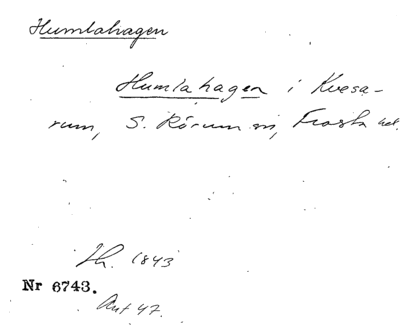 Humlahagen
Humlahagen i Kvesa-
rum, S. Rörum sn, Frosta hd.
Th. 1843
Nr 6743.
Ant 47.